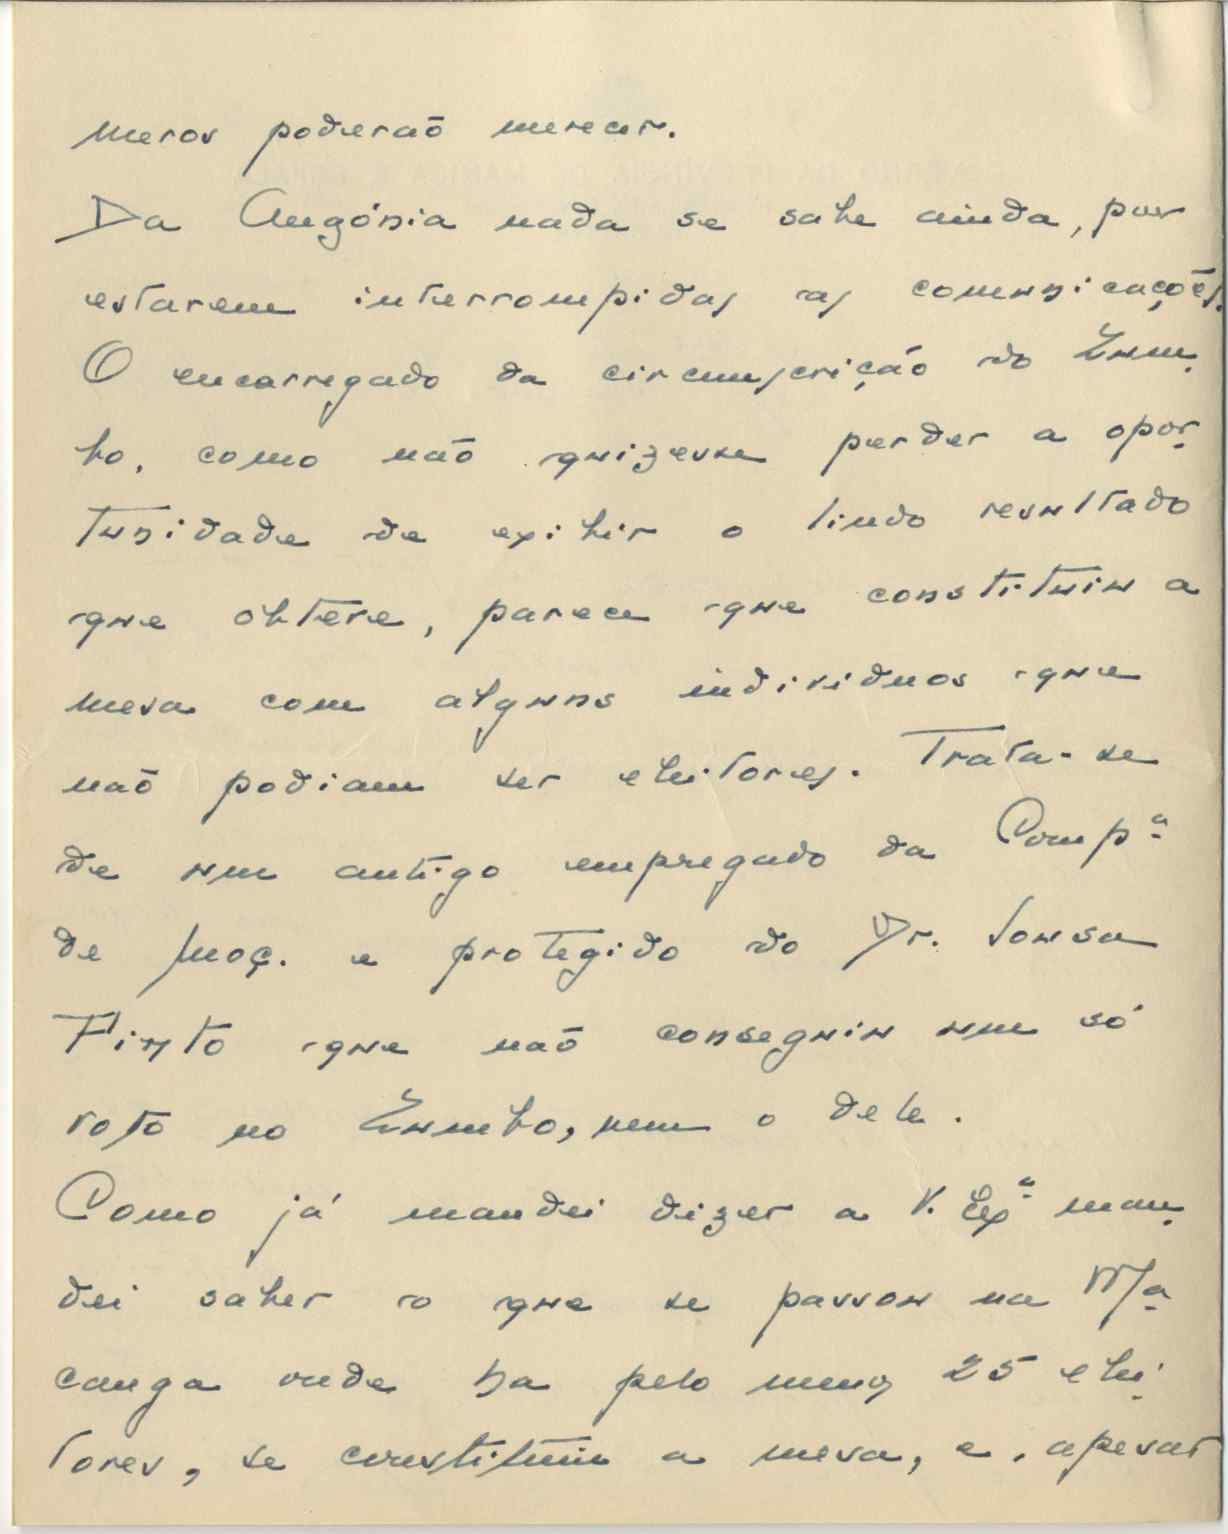 meros poderaõ merecer.
Da Angónia nada se sabe ainda, por
estarem interrompidas as comunicações.
O encarregado da circumscrição do Zum-
bo, como não quizesse perder a opor-
tunidade de exibir o lindo resultado
que obteve, parece que constituiu a
mesa com alguns individuos que
naõ podiam ser eleitores. Trata-se
de um antigo empregado da Compª
de Moç. e protegido do Dr. Sousa
Pinto que naõ conseguiu um só
voto no Zumbo, nem o dele.
Como já mandei dizer a V. Exª man-
dei saber o que se passou na Ma-
canga onde ha pelo menos 25 elei-
tores, se constituiu a mesa, e, apesar